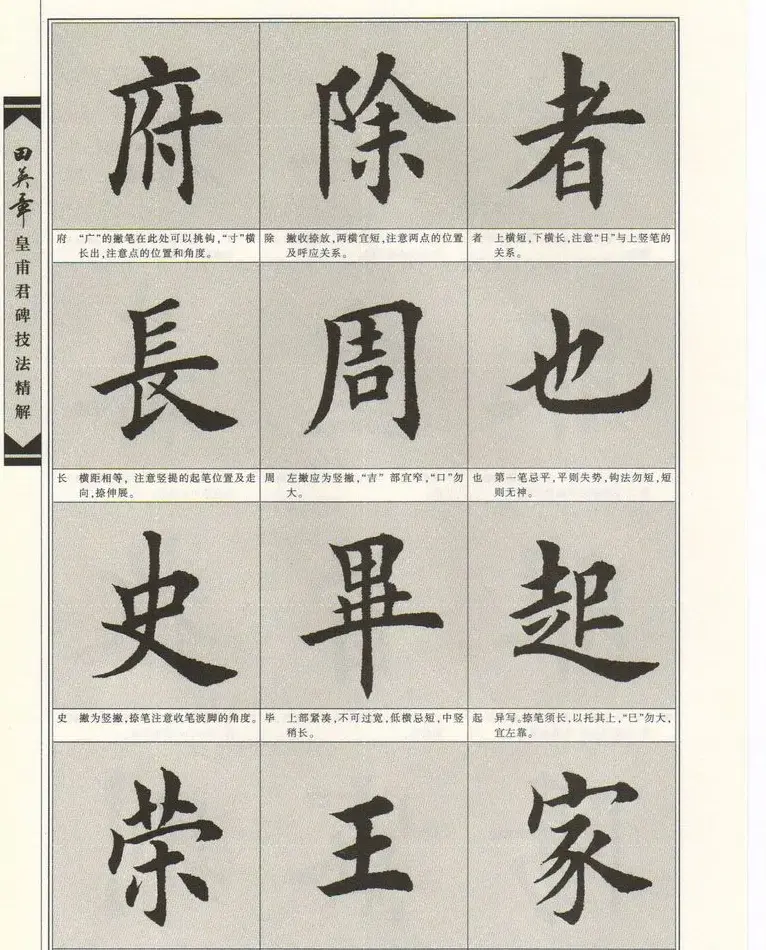 田英章
皇甫君碑技法精解
府 除 者
府 “广”的撇笔在此处可以挑钩，“寸”横
长出，注意点的位置和角度。
除 撇收捺放，两横宜短，注意两点的位置
及呼应关系。
者 上横短，下横长，注意“日”与上竖笔的
关系。
長 周 也
长 横距相等，注意竖提的起笔位置及走
向，捺伸展。
周 左撇应为竖撇，“吉”部宜窄，“口”勿
大。
也 第一笔忌平，平则失势，钩法勿短，短
则无神。
史 畢 起
史 撇为竖撇，捺笔注意收笔波脚的角度。
毕 上部紧凑，不可过宽，低横忌短，中竖
稍长。
起 异写。捺笔须长，以托其上，“巳”勿大，
宜左靠。
荣 王 家